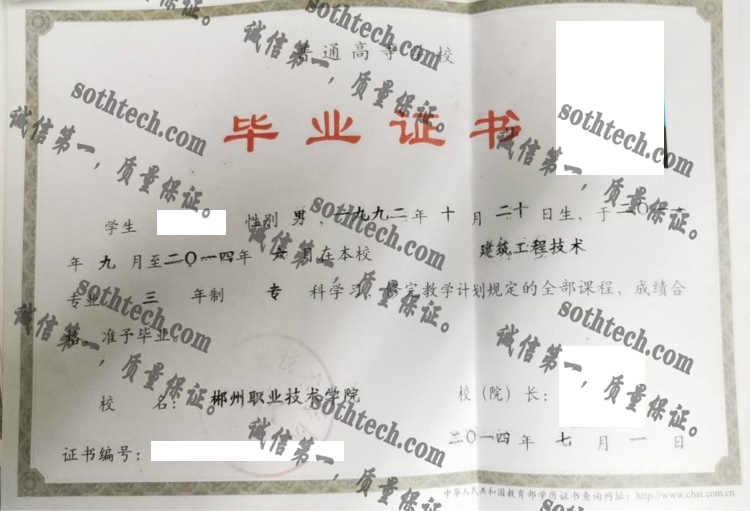 普通高等学校
毕业证书
学生 性别 男 , 一九九二 年 十 月 二十 日生, 于 二〇一一
年 九 月至 二〇一四 年 六 月在本校 建筑工程技术
专业 三 年制 专 科学习, 修完教学计划规定的全部课程, 成绩合
格, 准予毕业。
校 名: 郴州职业技术学院 校（院）长:
二〇一四 年 七 月 一 日
证书编号:
中华人民共和国教育部学历证书查询网址: http://www.chsi.com.cn
sothtech.com
诚信第一，质量保证。
sothtech.com
诚信第一，质量保证。
sothtech.com
诚信第一，质量保证。
sothtech.com
诚信第一，质量保证。
sothtech.com
诚信第一，质量保证。
sothtech.com
诚信第一，质量保证。
sothtech.com
诚信第一，质量保证。
sothtech.com
诚信第一，质量保证。